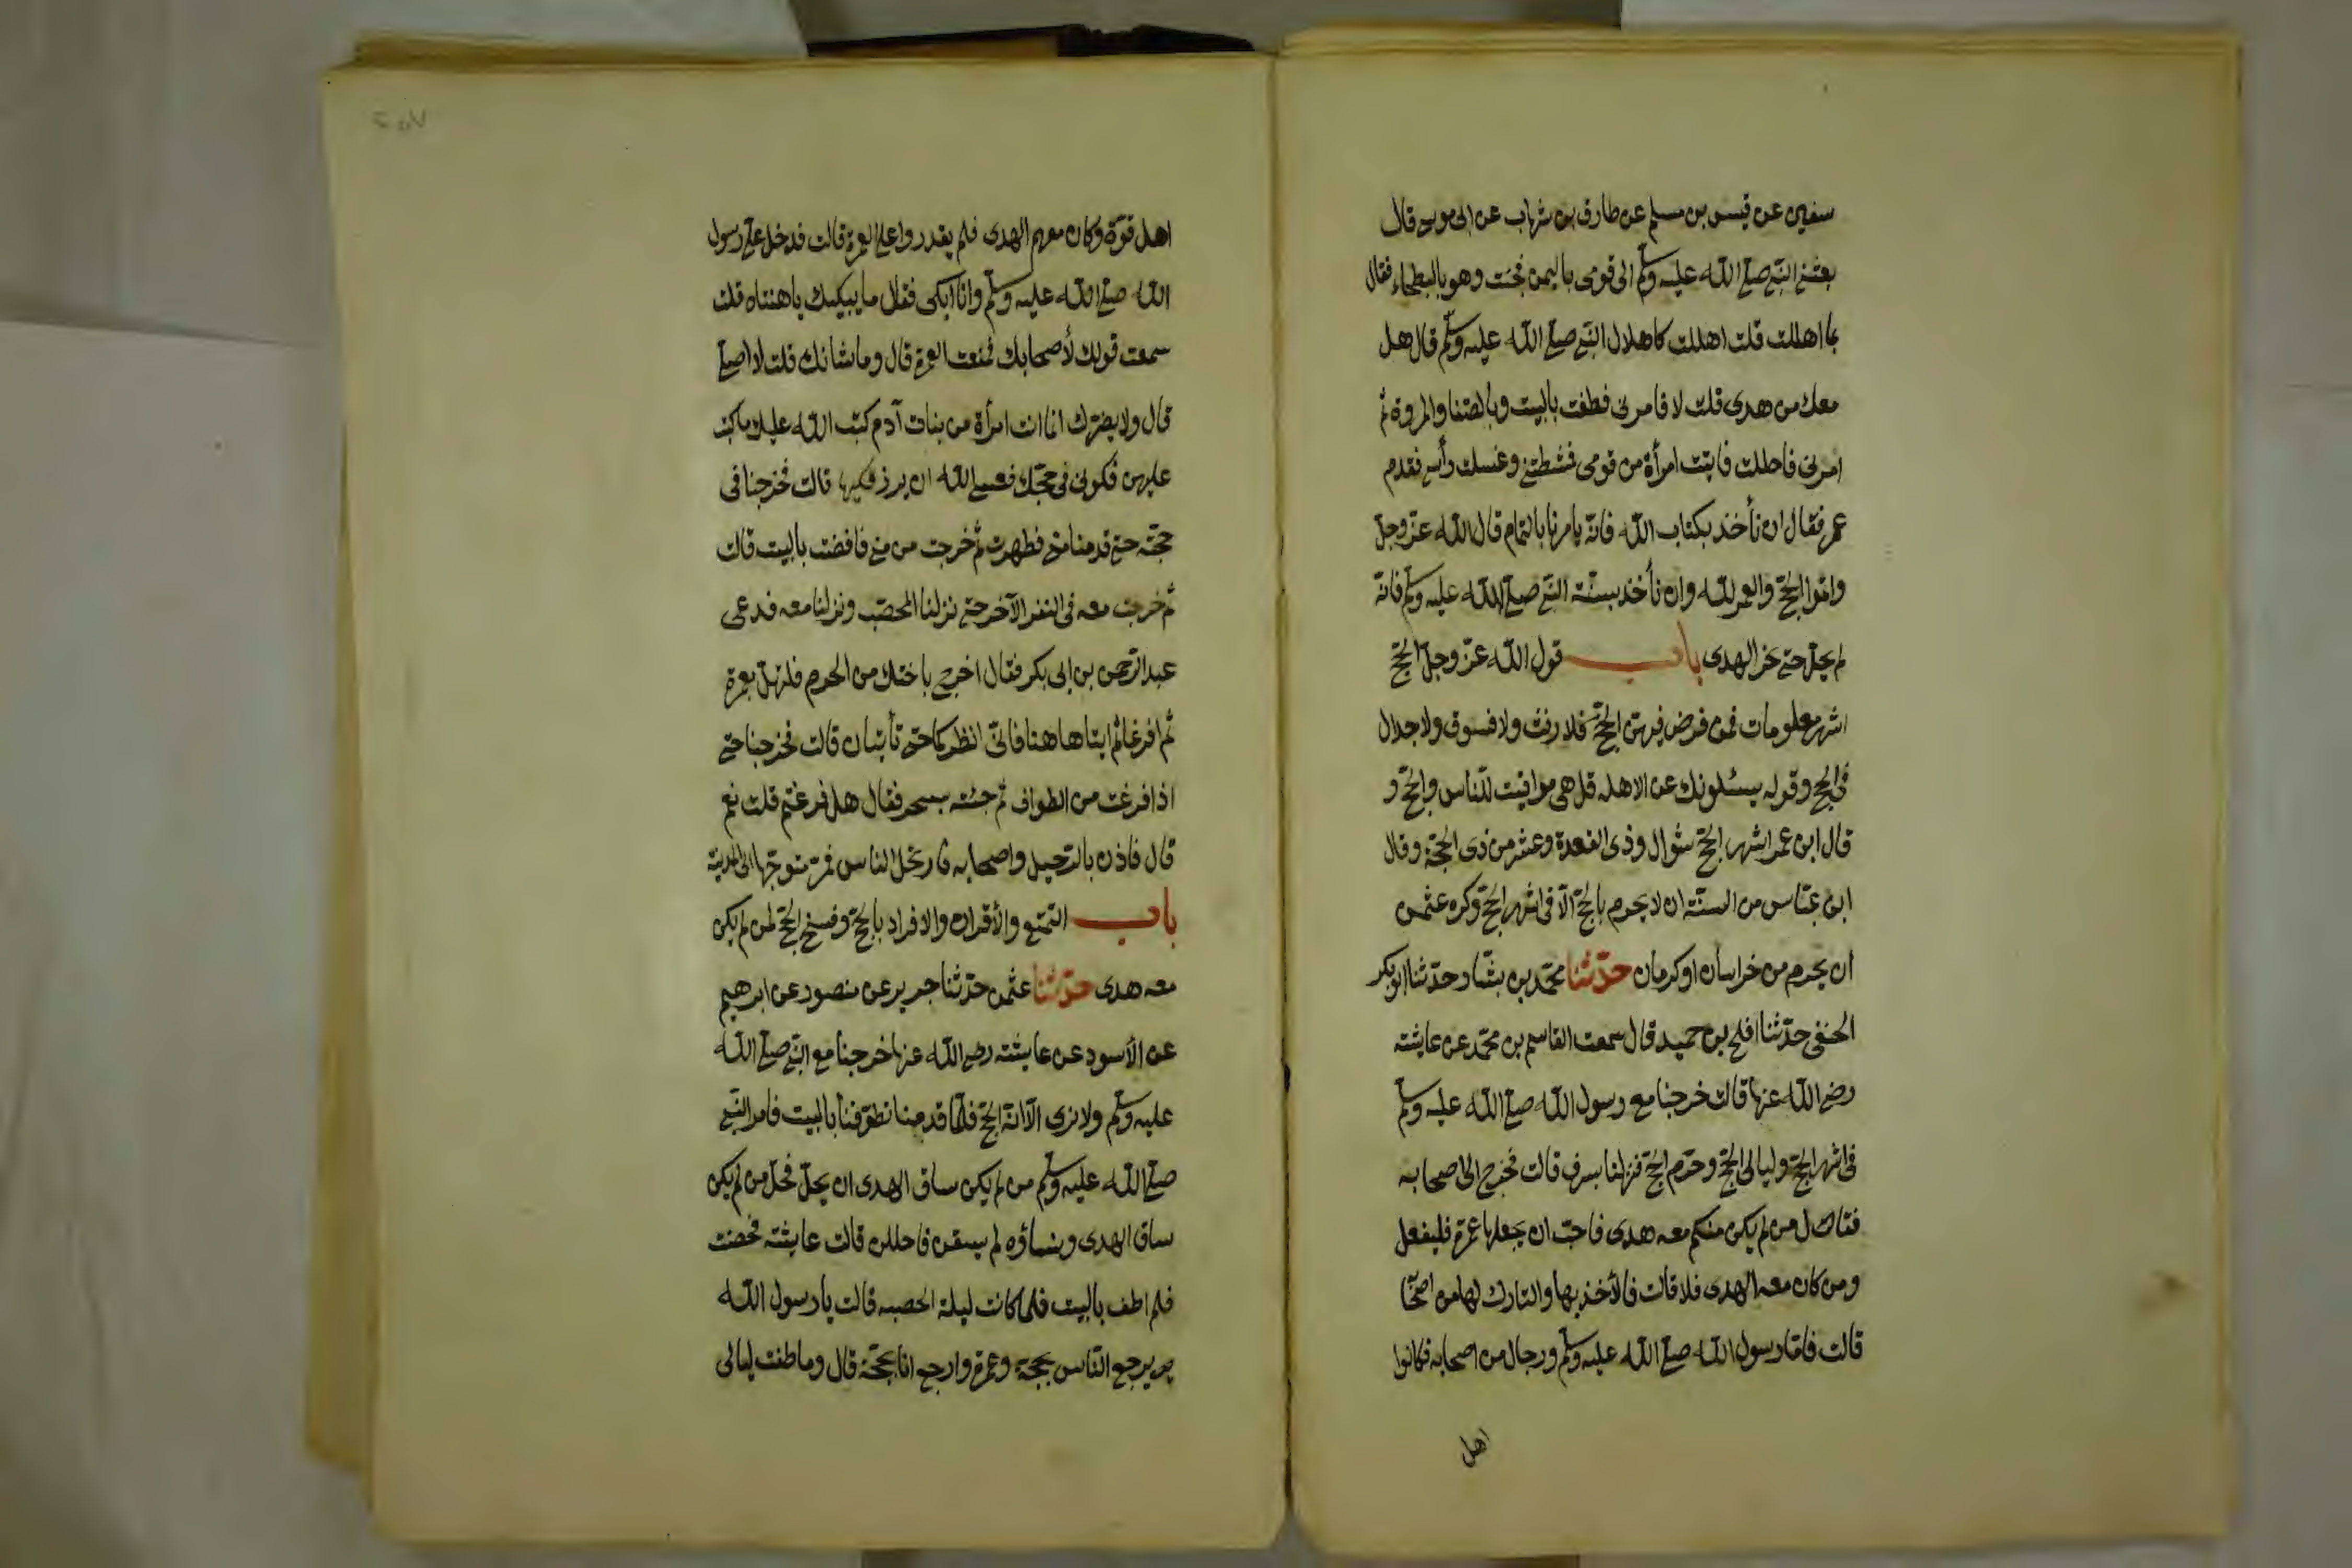 سفين عن قيس بن مسلم عن طارق بن شهاب عن ابى موسى قال
بعثنى النبى صلى الله عليه وسلم الى قومى باليمن فجئت وهو بالبطحاء فقال
بما اهللت قلت اهللت كاهلال النبى صلى الله عليه وسلم قال هل
معك من هدى قلت لا فامرنى فطفت بالبيت وبالصفا والمروة ثم
امرنى فاحللت فاتيت امرأة من قومى فمشطتنى وغسلت رأسى فقدم
عمر فقال ان نأخذ بكتاب الله فانّه يامرنا بالتمام قال الله عزّ وجلّ
واتموا الحجّ والعمرة لله وان نأخذ بسنّة النبى صلى الله عليه وسلم فانّه
لم يحلّ حتى نحر الهدى باب قول الله عزّ وجلّ الحجّ
اشهر معلومات فمن فرض فيهنّ الحجّ فلا رفث ولا فسوق ولا جدال
فى الحج وقوله يسئلونك عن الاهلة قل هى مواقيت للنّاس والحجّ و
قال ابن عمر اشهر الحجّ شوال وذى القعدة وعشر من ذى الحجّة وقال
ابن عبّاس من السنّة ان لا يحرم بالحجّ الّا فى اشهر الحجّ وكره عثمن
ان يحرم من خراسان او كرمان حدّثنا محمّد بن بشّار حدّثنا ابو بكر
الحنفى حدّثنا افلح بن حميد قال سمعت القاسم بن محمّد عن عايشة
رضى الله عنها قالت خرجنا مع رسول الله صلى الله عليه وسلم
فى اشهر الحجّ وليالى الحجّ وحرم الحجّ فنزلنا بسرف قالت فخرج الى اصحابه
فقال من لم يكن منكم معه هدى فاحبّ ان يجعلها عمرة فليفعل
ومن كان معه الهدى فلا قالت فالأخذ بها والتارك لها من اصحابه
قالت فامّا رسول الله صلى الله عليه وسلم ورجال من اصحابه فكانوا
اهل
اهل قوّة وكان معهم الهدى فلم يقدروا على العمرة قالت فدخل علىّ رسول
الله صلى الله عليه وسلم وانا ابكى فقال ما يبكيك يا هنتاه قلت
سمعت قولك لأصحابك فمنعت العمرة قال وما شانك قلت لا اصلى
قال ولا يضرّك انما انت امرأة من بنات آدم كتب الله عليك ما كتب
عليهن فكونى فى حجّتك فعسى الله ان يرزقكيها قالت فخرجنا فى
حجّته حتى قدمنا منى فطهرت ثم خرجت من منى فافضت بالبيت قالت
ثم خرجت معه فى النفر الآخر حتى نزلنا المحصّب ونزلنا معه فدعى
عبد الرّحمن بن ابى بكر فقال اخرج باختك من الحرم فلتهلّ بعمرة
ثم افرغا ثم ايتا هاهنا فانّى انظركما حتى تأتيان قالت فخرجنا حتى
اذا فرغت من الطواف ثم جئته بسحر فقال هل فرغتم قلت نعم
قال فاذن بالرّحيل واصحابه فارتحل الناس فمرّ متوجّها الى المدينة
باب التمتع والأقران والافراد بالحجّ وفسخ الحجّ لمن لم يكن
معه هدى حدّثنا عثمن حدّثنا جرير عن منصور عن ابرهيم
عن الأسود عن عايشة رضى الله عنها خرجنا مع النبى صلى الله
عليه وسلم ولا نرى الّا انّه الحجّ فلمّا قدمنا تطوّفنا بالبيت فامر النبى
صلى الله عليه وسلم من لم يكن ساق الهدى ان يحلّ فحلّ من لم يكن
ساق الهدى ونساؤه لم يسقن فاحللن قالت عايشة فحضت
فلم اطف بالبيت فلما كانت ليلة الحصبه قالت يا رسول الله
يرجع النّاس بحجة وعمرة وارجع انا بحجّة قال وما طفت ليالى